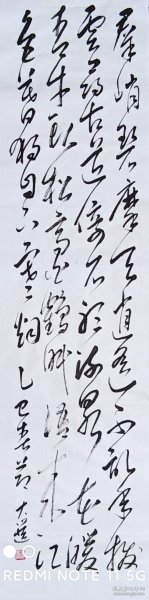 羣峭碧摩天逍遥不記年撥
雲尋古道倚石聽流泉花暖
青牛卧松高白鶴眠語来江
色暮獨自下寒烟 乙巳春节 大
REDMI NOTE 11 5G